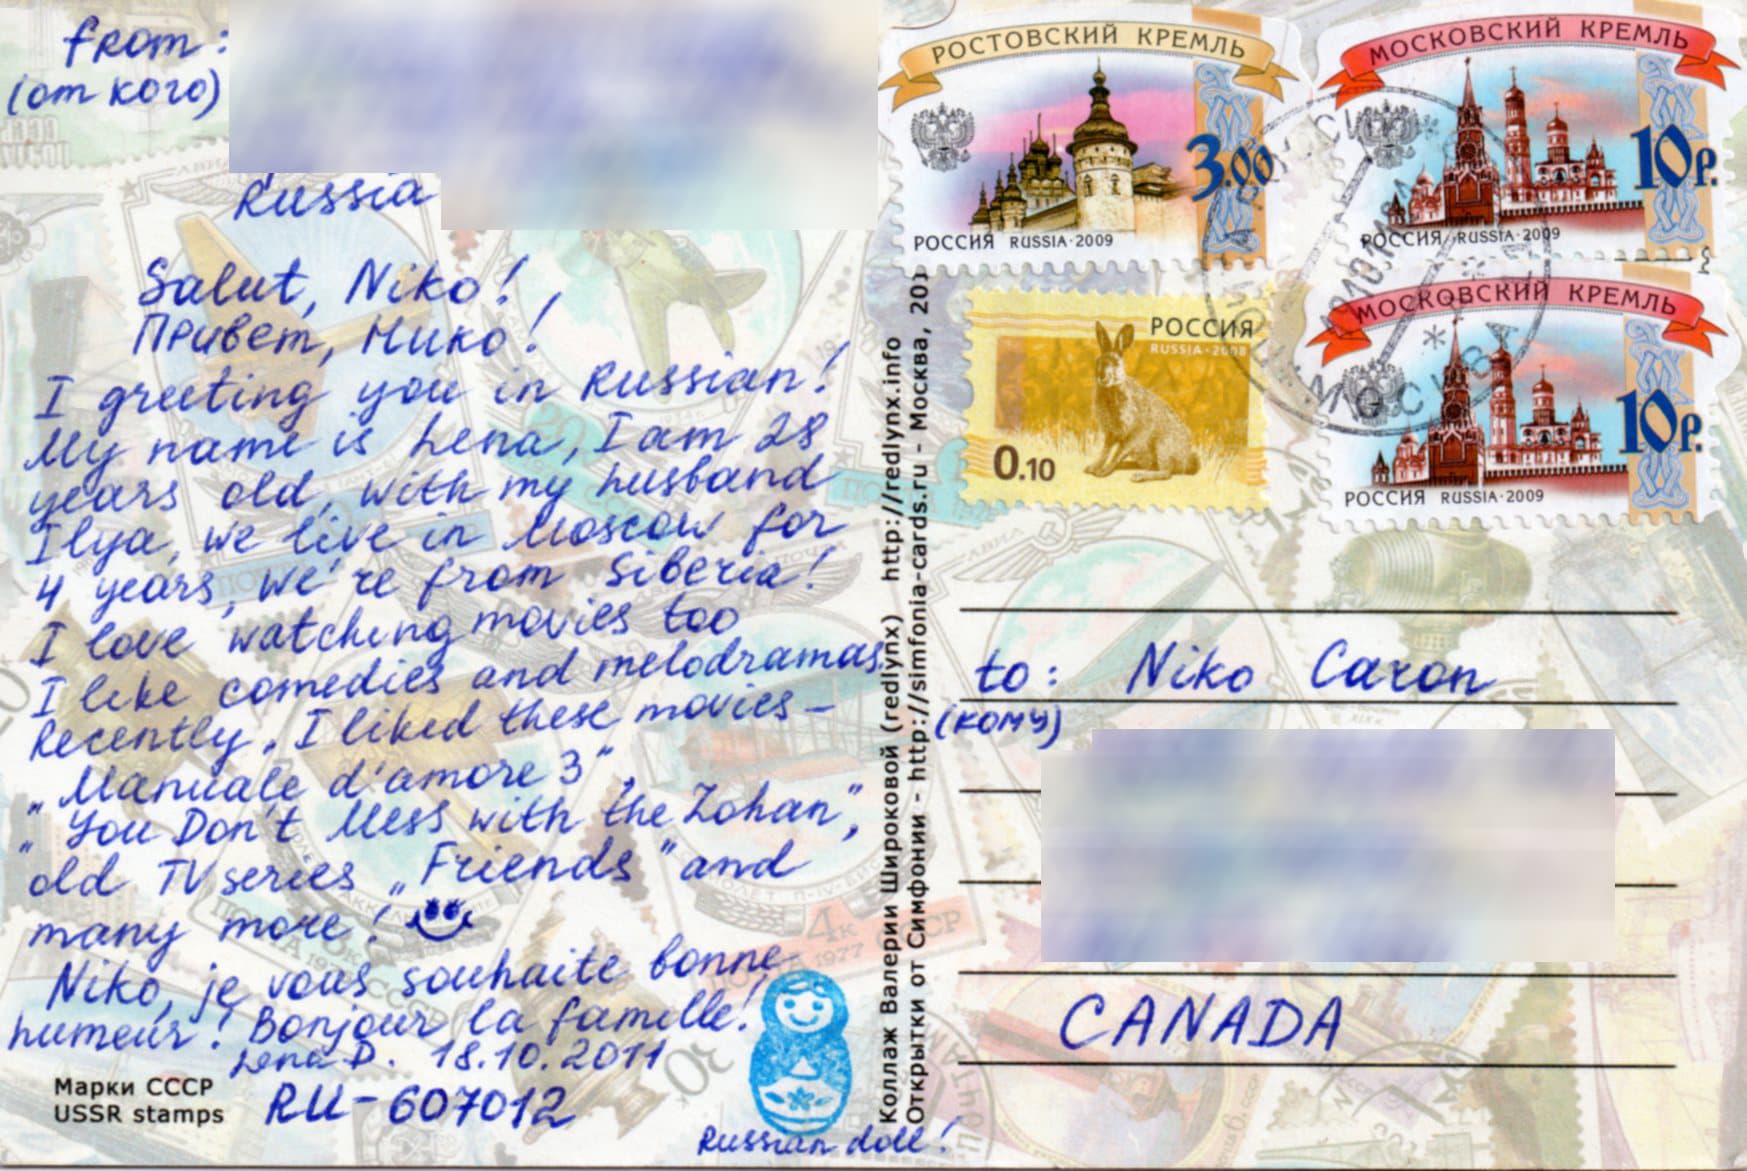 from:
(от кого)
Russia
Salut, Niko!
Привет, Нико!
I greeting you in Russian!
My name is Lena, I am 28
years old, with my husband
Ilya, we live in Moscow for
4 years, we're from Siberia!
I love watching movies too
I like comedies and melodramas.
Recently, I liked these movies –
„Manuale d'amore 3",
"You Don't Mess with the Zohan",
old TV series „Friends" and
many more!
Niko, je vous souhaite bonne
humeur! Bonjour la famille!
Lena D. 18.10.2011
Марки СССР
USSR stamps
RU-607012
Russian doll!
Коллаж Валерии Широковой (redlynx) http://redlynx.info
Открытки от Симфонии - http://simfonia-cards.ru - Москва,
РОСТОВСКИЙ КРЕМЛЬ
3.00
РОССИЯ RUSSIA·2009
МОСКОВСКИЙ КРЕМЛЬ
10р.
РОССИЯ RUSSIA·2009
РОССИЯ
RUSSIA·2008
0.10
МОСКОВСКИЙ КРЕМЛЬ
10р.
РОССИЯ RUSSIA·2009
МОСКВА
to: Niko Caron
(кому)
CANADA